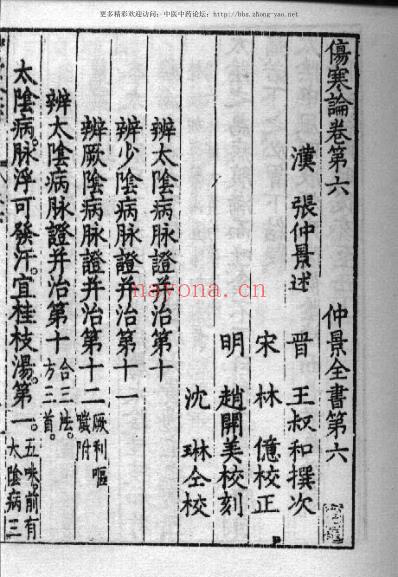 更多精彩欢迎访问:中医中药论坛:http://bbs.zhong-yao.net/
傷寒論卷第六 仲景全書第六
漢 張仲景述 晉 王叔和撰次
宋 林 億校正
明 趙開美校刻
沈 琳仝校
辨太陰病脉證并治第十
辨少陰病脉證并治第十一
辨厥陰病脉證并治第十二 厥利嘔噦附
辨太陰病脉證并治第十 合三法。方三首。
太陰病。脉浮可發汗。宜桂枝湯。第一。五味。前有太陰病三
nayona.cn